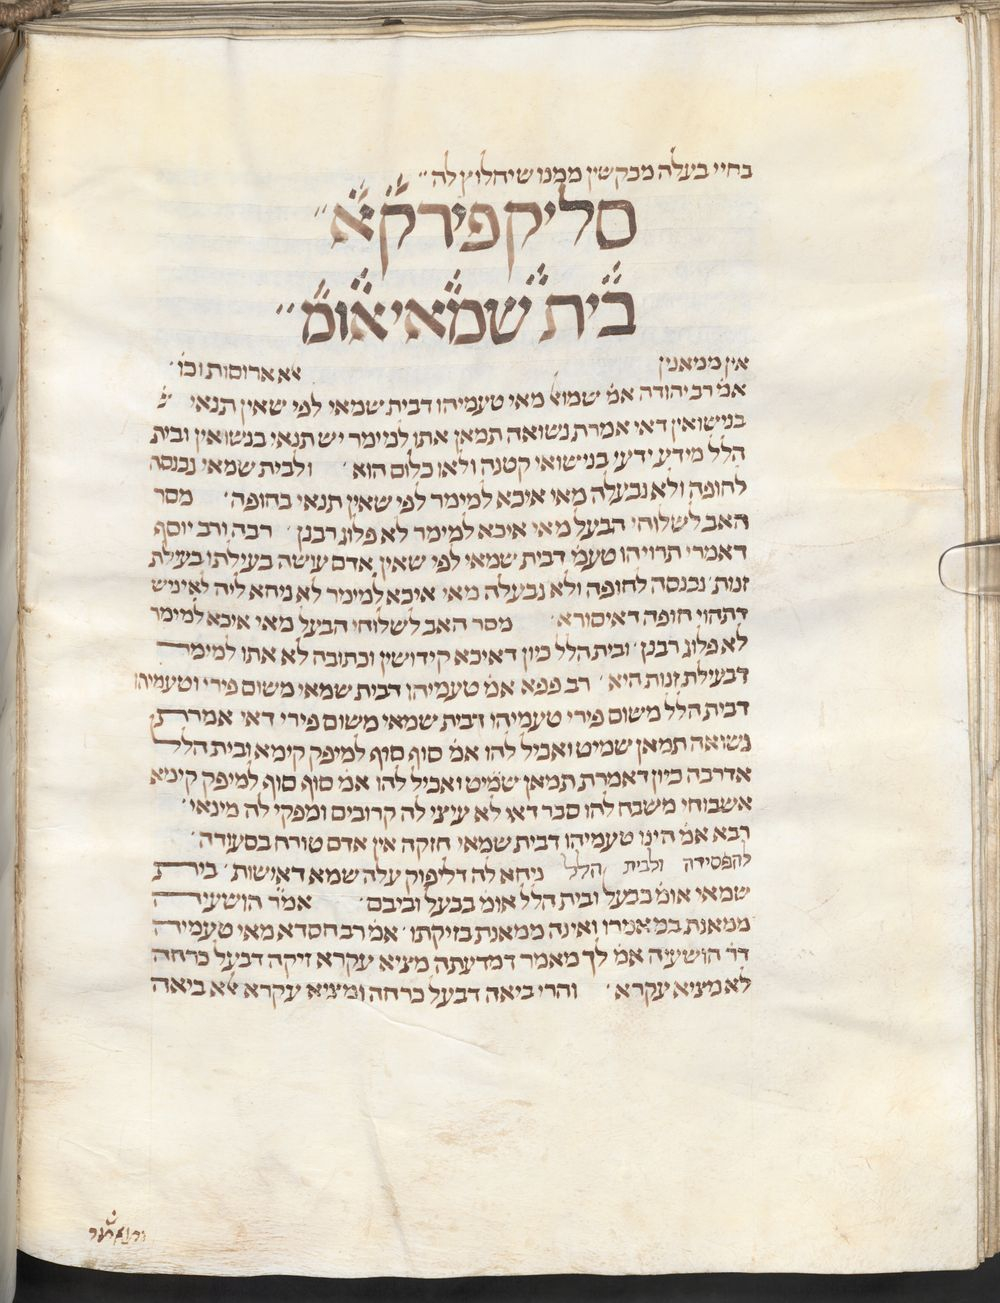 בחיי בעלה מבקשין ממנו שיחלוץ לה
סליק פירקא
בית שמאי אומ׳
אין ממאנין אלא ארוסות וכו׳
אמ׳ רב יהודה אמ׳ שמואל מאי טעמיהו דבית שמאי לפי שאין תנאי
בנישואין דאי אמרת נשואה תמאן אתו למימר יש תנאי בנשואין ובית
הלל מידע ידעי בנישואי קטנה ולאו כלום הוא ולבית שמאי נכנסה
לחופה ולא נבעלה מאי איכא למימר לפי שאין תנאי בחופה מסר
האב לשלוחי הבעל מאי איכא למימר לא פלוג רבנן רבה ורב יוסף
דאמרי תרויהו טעמ׳ דבית שמאי לפי שאין אדם עושה בעילתו בעילת
זנות נכנסה לחופה ולא נבעלה מאי איכא למימר לא ניחא ליה לאיניש
דתהוי חופה דאיסורא מסר האב לשלוחי הבעל מאי איכא למימר
לא פלוג רבנן ובית הלל כיון דאיכא קידושין וכתובה לא אתו למימר
דבעילת זנות היא רב פפא אמ׳ טעמיהו דבית שמאי משום פירי וטעמיהו
דבית הלל משום פירי טעמיהו דבית שמאי משום פירי דאי אמרת
נשואה תמאן שמיט ואכיל להו אמ׳ סוף סוף למיפק קימא ובית הלל
אדרבה כיון דאמרת תמאן שמיט ואכיל להו אמ׳ סוף סוף למיפק קימא
אשבוחי משבח להו סבר דאי לא עיצי לה קרובים ומפקי לה מינאי
רבא אמ׳ הינו טעמיהו דבית שמאי חזקה אין אדם טורח בסעודה
להפסידה ולבית הלל ניחא לה דליפוק עלה שמא דאישות בית
שמאי אומ׳ בבעל ובית הלל אומ׳ בבעל וביבם אמ׳ר הושעיה
ממאנת במאמרו ואינה ממאנת בזיקתו אמ׳ רב חסדא מאי טעמיה
דר׳ הושעיה אמ׳ לך מאמר דמדעתה מציא עקרא זיקה דבעל כרחה
לא מציא עקרא והרי ביאה דבעל כרחה ומציא עקרא אלא ביאה